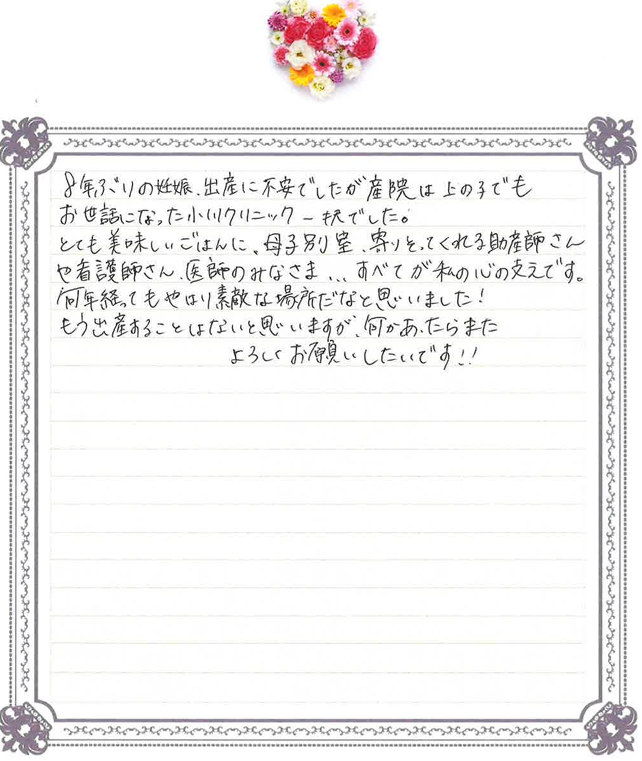 8年ぶりの妊娠、出産に不安でしたが産院は上の子でも
お世話になった小川クリニック一択でした。
とても美味しいごはんに、母子別室、寄りそってくれる助産師さん
や看護師さん、医師のみなさま...すべてが私の心の支えです。
何年経ってもやはり素敵な場所だなと思いました!
もう出産することはないと思いますが、何かあったらまた
よろしくお願いしたいです!!